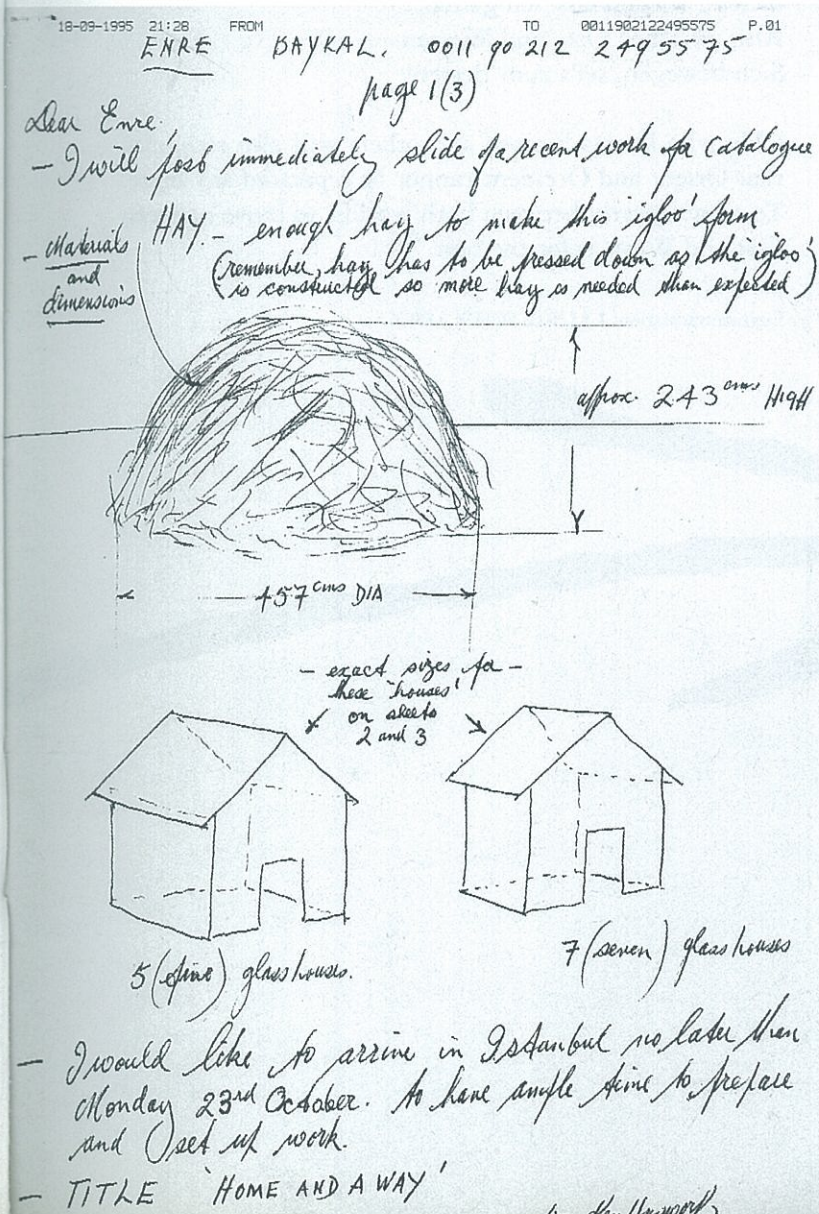 18-09-1995 21:28 FROM TO 00119021222495575 P.01
ENRE BAYKAL. 0011 90 212 2495575
page 1(3)
Dear Enre,
- I will post immediately slide of a recent work for catalogue
- Materials and dimensions
HAY. - enough hay to make this 'igloo' form
(remember, hay has to be pressed down as the 'igloo'
is constructed so more hay is needed than expected)
approx. 243 cms HIGH
457 cms DIA
- exact sizes for -
these 'houses'
on sheets
2 and 3
5 (five) glass houses.
7 (seven) glass houses
- I would like to arrive in Istanbul no later than
Monday 23rd October. to have ample time to prepare
and set up work.
- TITLE 'HOME AND A WAY'